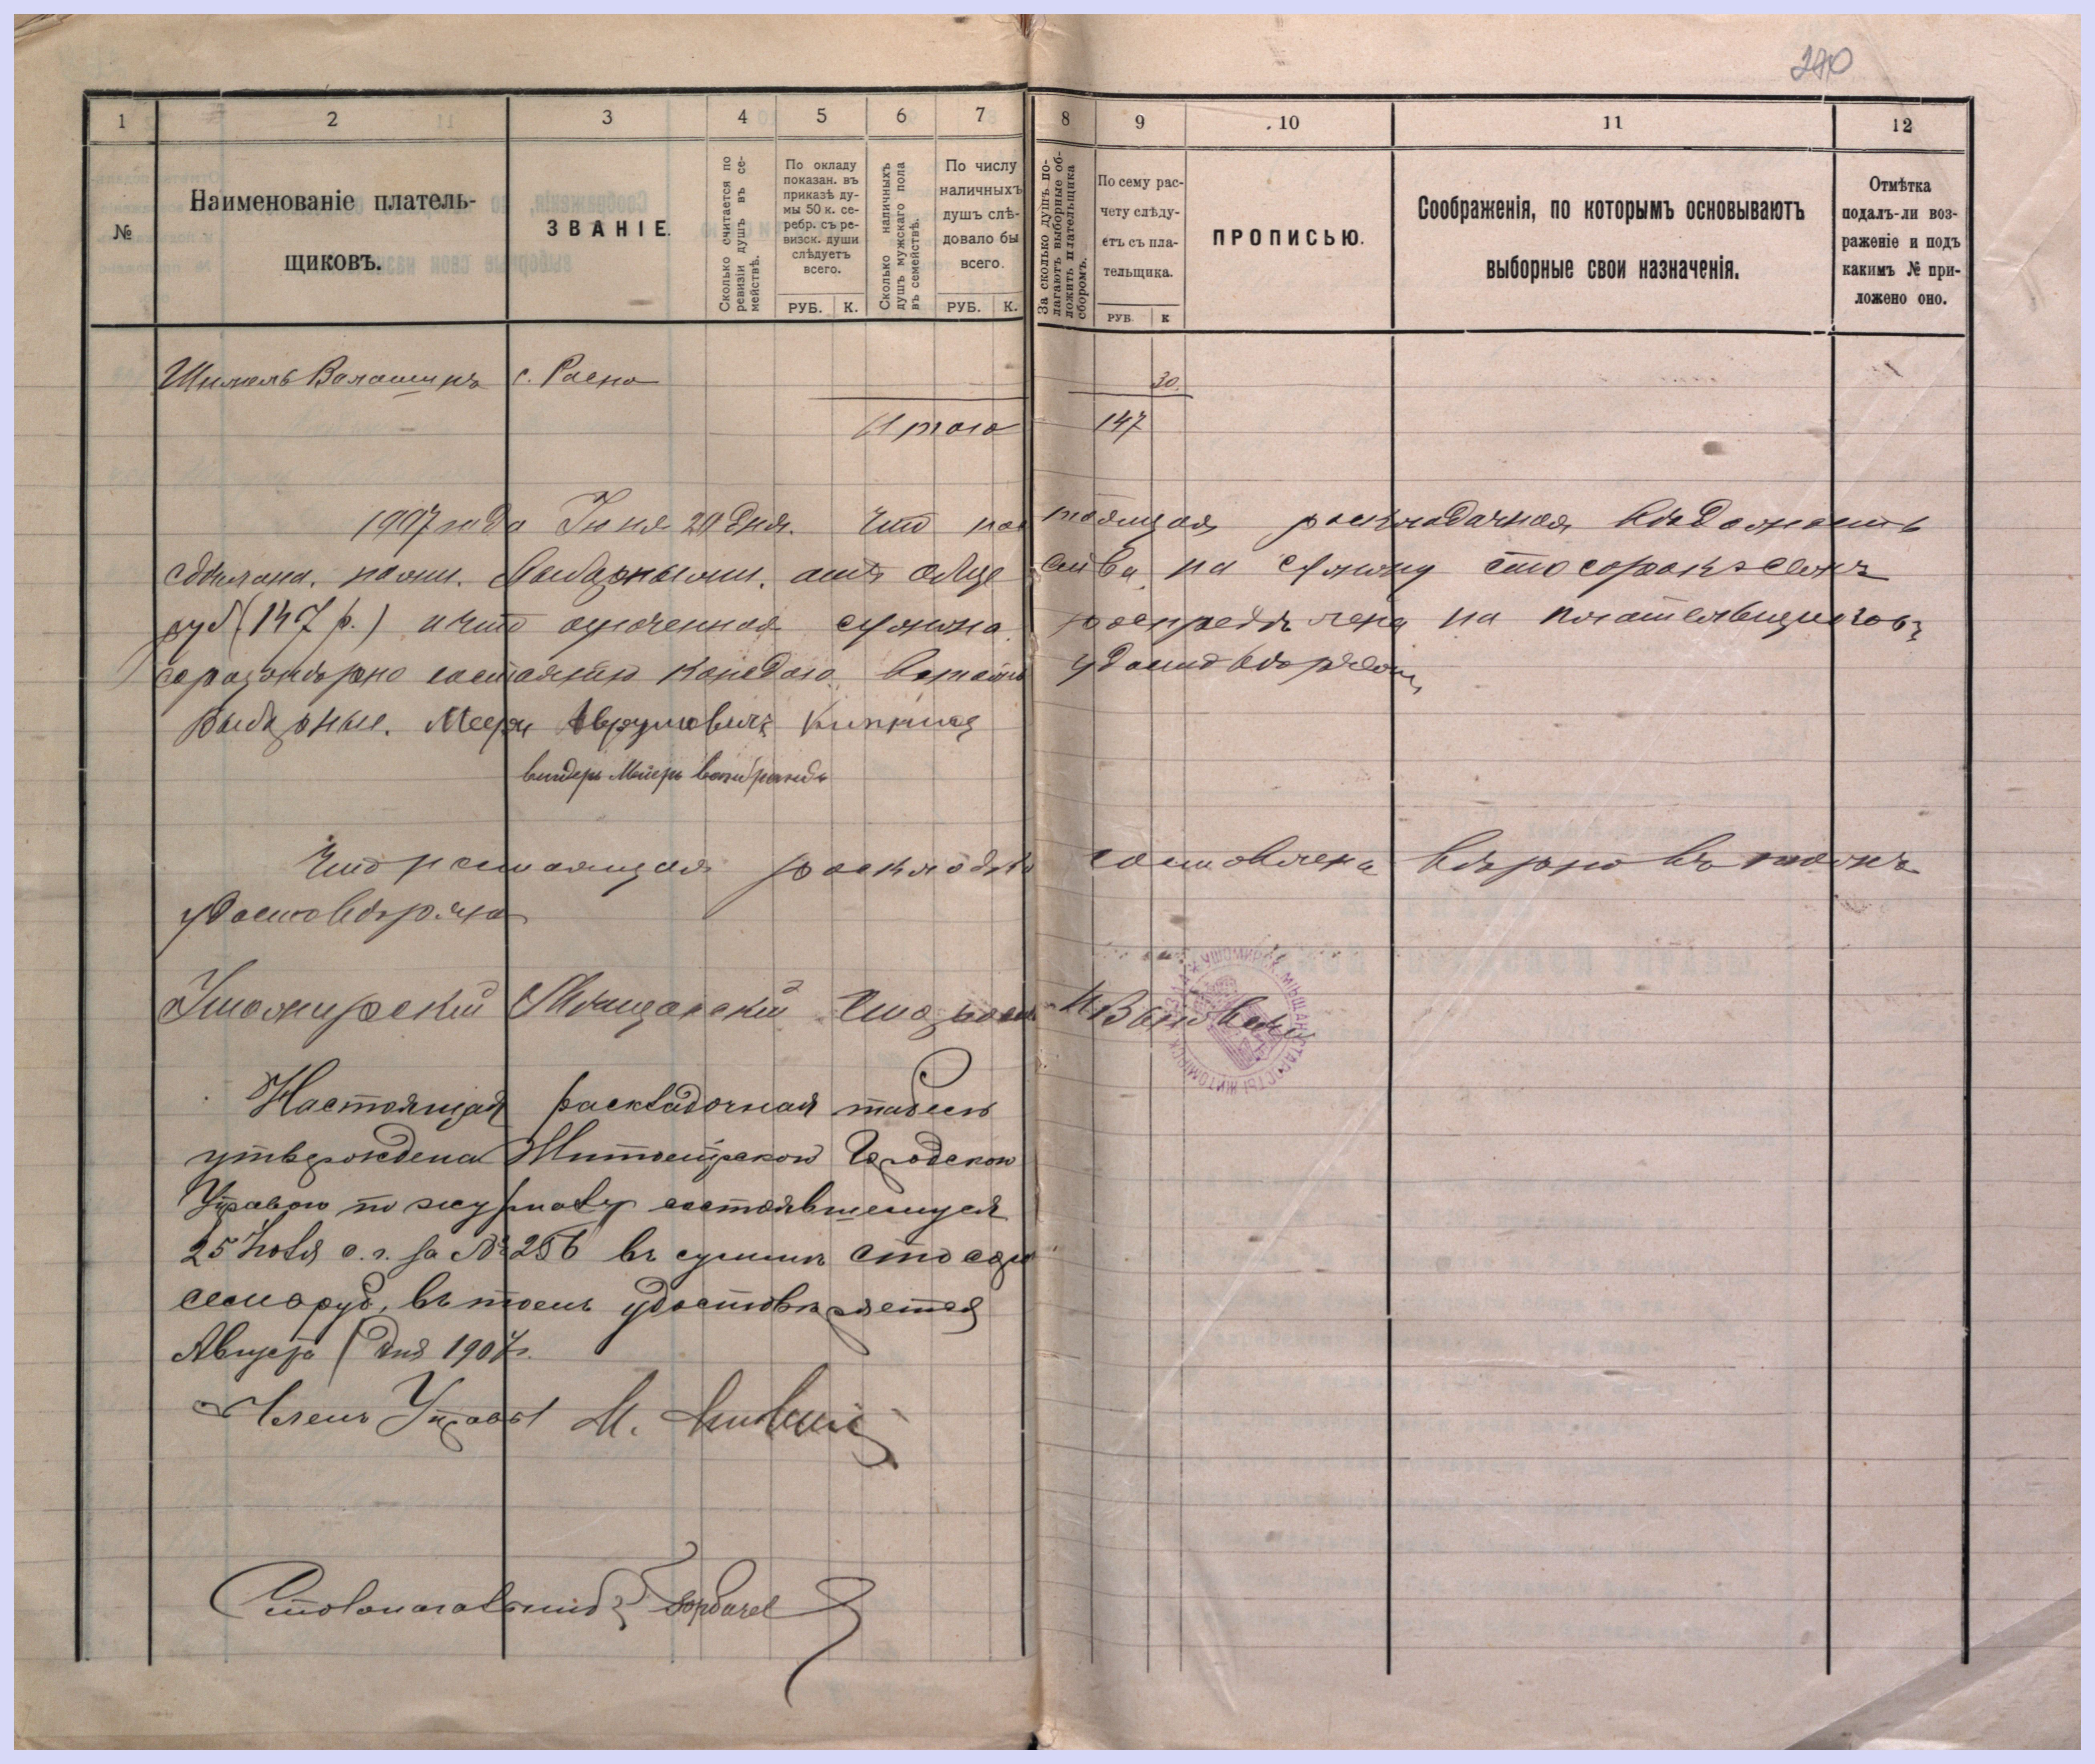 240
1 2 3 4 5 6 7 8 9 10 11 12
№
Наименованіе платель-
щиковъ.
ЗВАНІЕ.
Сколько считается по
ревизіи душъ въ се-
мействѣ.
По окладу
показан. въ
приказѣ ду-
мы 50 к. се-
ребр. съ ре-
визск. души
слѣдуетъ
всего.
РУБ. К.
Сколько наличныхъ
душъ мужскаго пола
въ семействѣ.
По числу
наличныхъ
душъ слѣ-
довало бы
всего.
РУБ. К.
За сколько душъ по-
лагаютъ выборные об-
ложить плательщика
сборомъ.
По сему рас-
чету слѣду-
етъ съ пла-
тельщика.
РУБ. К
ПРОПИСЬЮ.
Соображенія, по которымъ основываютъ
выборные свои назначенія.
Отмѣтка
подалъ-ли воз-
раженіе и подъ
какимъ № при-
ложено оно.
с. Расно 30
Итого 147
1907 года Іюня 20 дня. Что настоящая раскладочная вѣдомость
сдѣлана нами выборными отъ общества на сумму сто сорокъ семь
руб (147 р.) и что означенная сумма распредѣлена на плательщиковъ
соразмѣрно состоянію каждаго въ томъ удостовѣряемъ
Выборные.
Что настоящая раскладка составлена вѣрно въ томъ
удостовѣряю
Ушомирскій Мѣщанскій Староста
УШОМИРСК. МѢЩАНС. СТАРОСТЫ ЖИТОМІРСК.
Настоящая раскладочная табель
утверждена Житомірской Городской
Управою по журналу состоявшемуся
25 Іюля с. г. за № 256 въ суммѣ сто сорокъ
семь руб, въ томъ удостовѣряется
Августа дня 1907 г.
Членъ Управы М.
Столоначальникъ